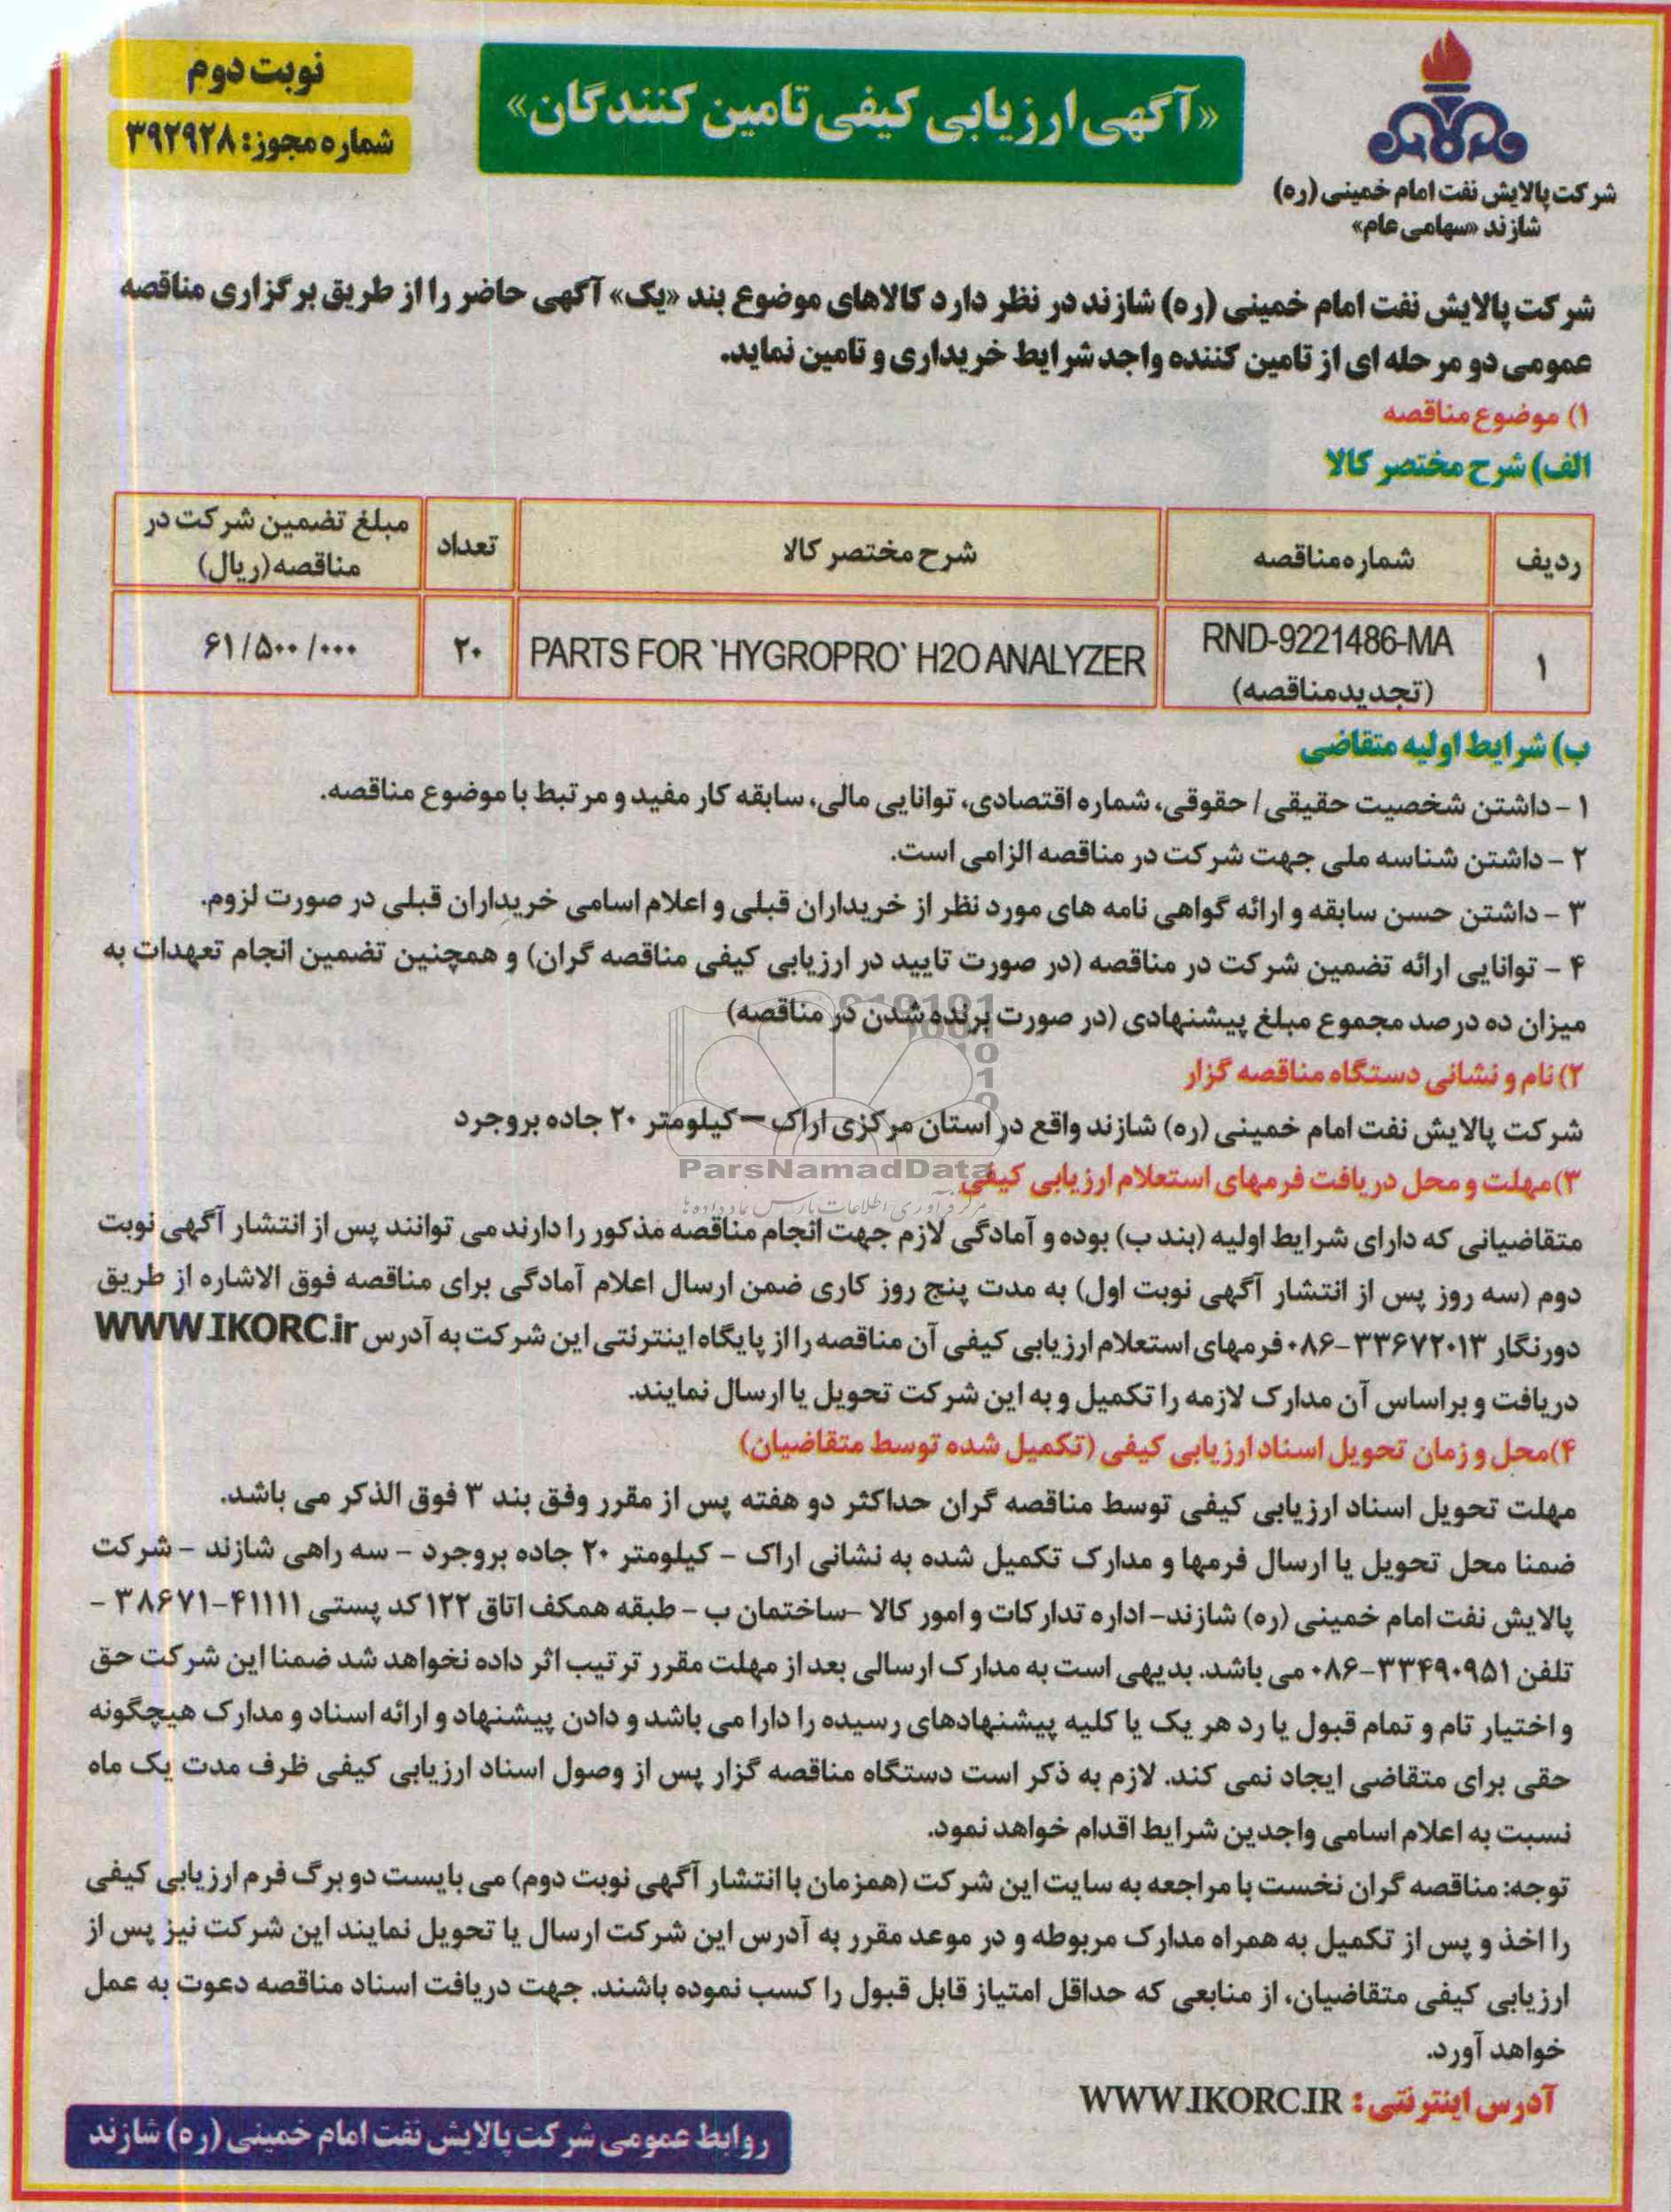 شرکت پالایش نفت امام خمینی (ره)
شازند «سهامی عام»
«آگهی ارزیابی کیفی تامین کنندگان»
نوبت دوم
شماره مجوز: ۳۹۲۹۲۸
شرکت پالایش نفت امام خمینی (ره) شازند در نظر دارد کالاهای موضوع بند «یک» آگهی حاضر را از طریق برگزاری مناقصه
عمومی دو مرحله ای از تامین کننده واجد شرایط خریداری و تامین نماید.
۱) موضوع مناقصه
الف) شرح مختصر کالا
ردیف
شماره مناقصه
شرح مختصر کالا
تعداد
مبلغ تضمین شرکت در
مناقصه (ریال)
۱
RND-9221486-MA
(تجدید مناقصه)
PARTS FOR `HYGROPRO` H2O ANALYZER
۲۰
۶۱/۵۰۰/۰۰۰
ب) شرایط اولیه متقاضی
۱ - داشتن شخصیت حقیقی / حقوقی، شماره اقتصادی، توانایی مالی، سابقه کار مفید و مرتبط با موضوع مناقصه.
۲ - داشتن شناسه ملی جهت شرکت در مناقصه الزامی است.
۳ - داشتن حسن سابقه و ارائه گواهی نامه های مورد نظر از خریداران قبلی و اعلام اسامی خریداران قبلی در صورت لزوم.
۴ - توانایی ارائه تضمین شرکت در مناقصه (در صورت تایید در ارزیابی کیفی مناقصه گران) و همچنین تضمین انجام تعهدات به
میزان ده درصد مجموع مبلغ پیشنهادی (در صورت برنده شدن در مناقصه)
۲) نام و نشانی دستگاه مناقصه گزار
شرکت پالایش نفت امام خمینی (ره) شازند واقع در استان مرکزی اراک – کیلومتر ۲۰ جاده بروجرد
ParsNamadData
مرکز فرآوری اطلاعات پارس نماد داده ها
۳) مهلت و محل دریافت فرمهای استعلام ارزیابی کیفی
متقاضیانی که دارای شرایط اولیه (بند ب) بوده و آمادگی لازم جهت انجام مناقصه مذکور را دارند می توانند پس از انتشار آگهی نوبت
دوم (سه روز پس از انتشار آگهی نوبت اول) به مدت پنج روز کاری ضمن ارسال اعلام آمادگی برای مناقصه فوق الاشاره از طریق
دورنگار ۳۳۶۷۲۰۱۳-۰۸۶ فرمهای استعلام ارزیابی کیفی آن مناقصه را از پایگاه اینترنتی این شرکت به آدرس WWW.IKORC.ir
دریافت و براساس آن مدارک لازمه را تکمیل و به این شرکت تحویل یا ارسال نمایند.
۴) محل و زمان تحویل اسناد ارزیابی کیفی (تکمیل شده توسط متقاضیان)
مهلت تحویل اسناد ارزیابی کیفی توسط مناقصه گران حداکثر دو هفته پس از مقرر وفق بند ۳ فوق الذکر می باشد.
ضمنا محل تحویل یا ارسال فرمها و مدارک تکمیل شده به نشانی اراک - کیلومتر ۲۰ جاده بروجرد - سه راهی شازند - شرکت
پالایش نفت امام خمینی (ره) شازند- اداره تدارکات و امور کالا -ساختمان ب - طبقه همکف اتاق ۱۲۲ کد پستی ۴۱۱۱۱-۳۸۶۷۱ -
تلفن ۳۳۴۹۰۹۵۱-۰۸۶ می باشد. بدیهی است به مدارک ارسالی بعد از مهلت مقرر ترتیب اثر داده نخواهد شد ضمنا این شرکت حق
و اختیار تام و تمام قبول یا رد هر یک یا کلیه پیشنهادهای رسیده را دارا می باشد و دادن پیشنهاد و ارائه اسناد و مدارک هیچگونه
حقی برای متقاضی ایجاد نمی کند. لازم به ذکر است دستگاه مناقصه گزار پس از وصول اسناد ارزیابی کیفی ظرف مدت یک ماه
نسبت به اعلام اسامی واجدین شرایط اقدام خواهد نمود.
توجه: مناقصه گران نخست با مراجعه به سایت این شرکت (همزمان با انتشار آگهی نوبت دوم) می بایست دو برگ فرم ارزیابی کیفی
را اخذ و پس از تکمیل به همراه مدارک مربوطه و در موعد مقرر به آدرس این شرکت ارسال یا تحویل نمایند این شرکت نیز پس از
ارزیابی کیفی متقاضیان، از منابعی که حداقل امتیاز قابل قبول را کسب نموده باشند. جهت دریافت اسناد مناقصه دعوت به عمل
خواهد آورد.
آدرس اینترنتی: WWW.IKORC.IR
روابط عمومی شرکت پالایش نفت امام خمینی (ره) شازند